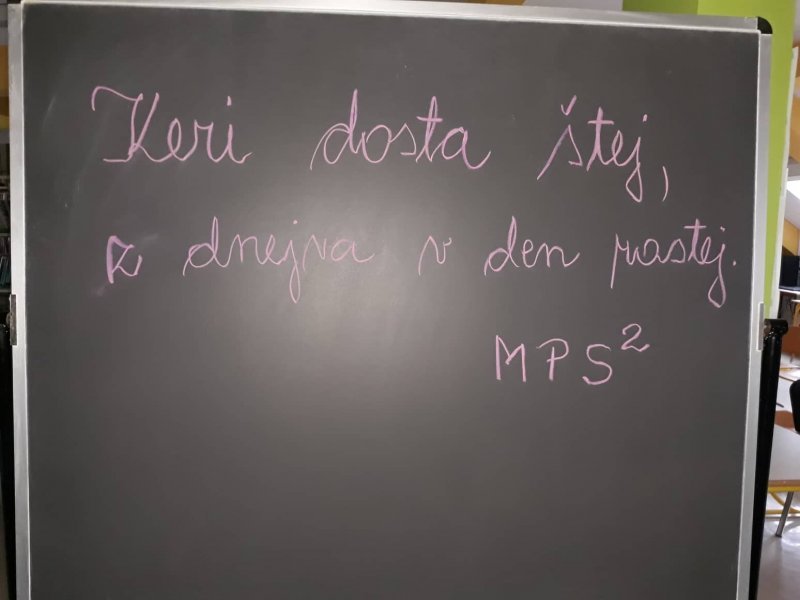 Keri dosta štej,
z dnejva v den rastej.
MPS²